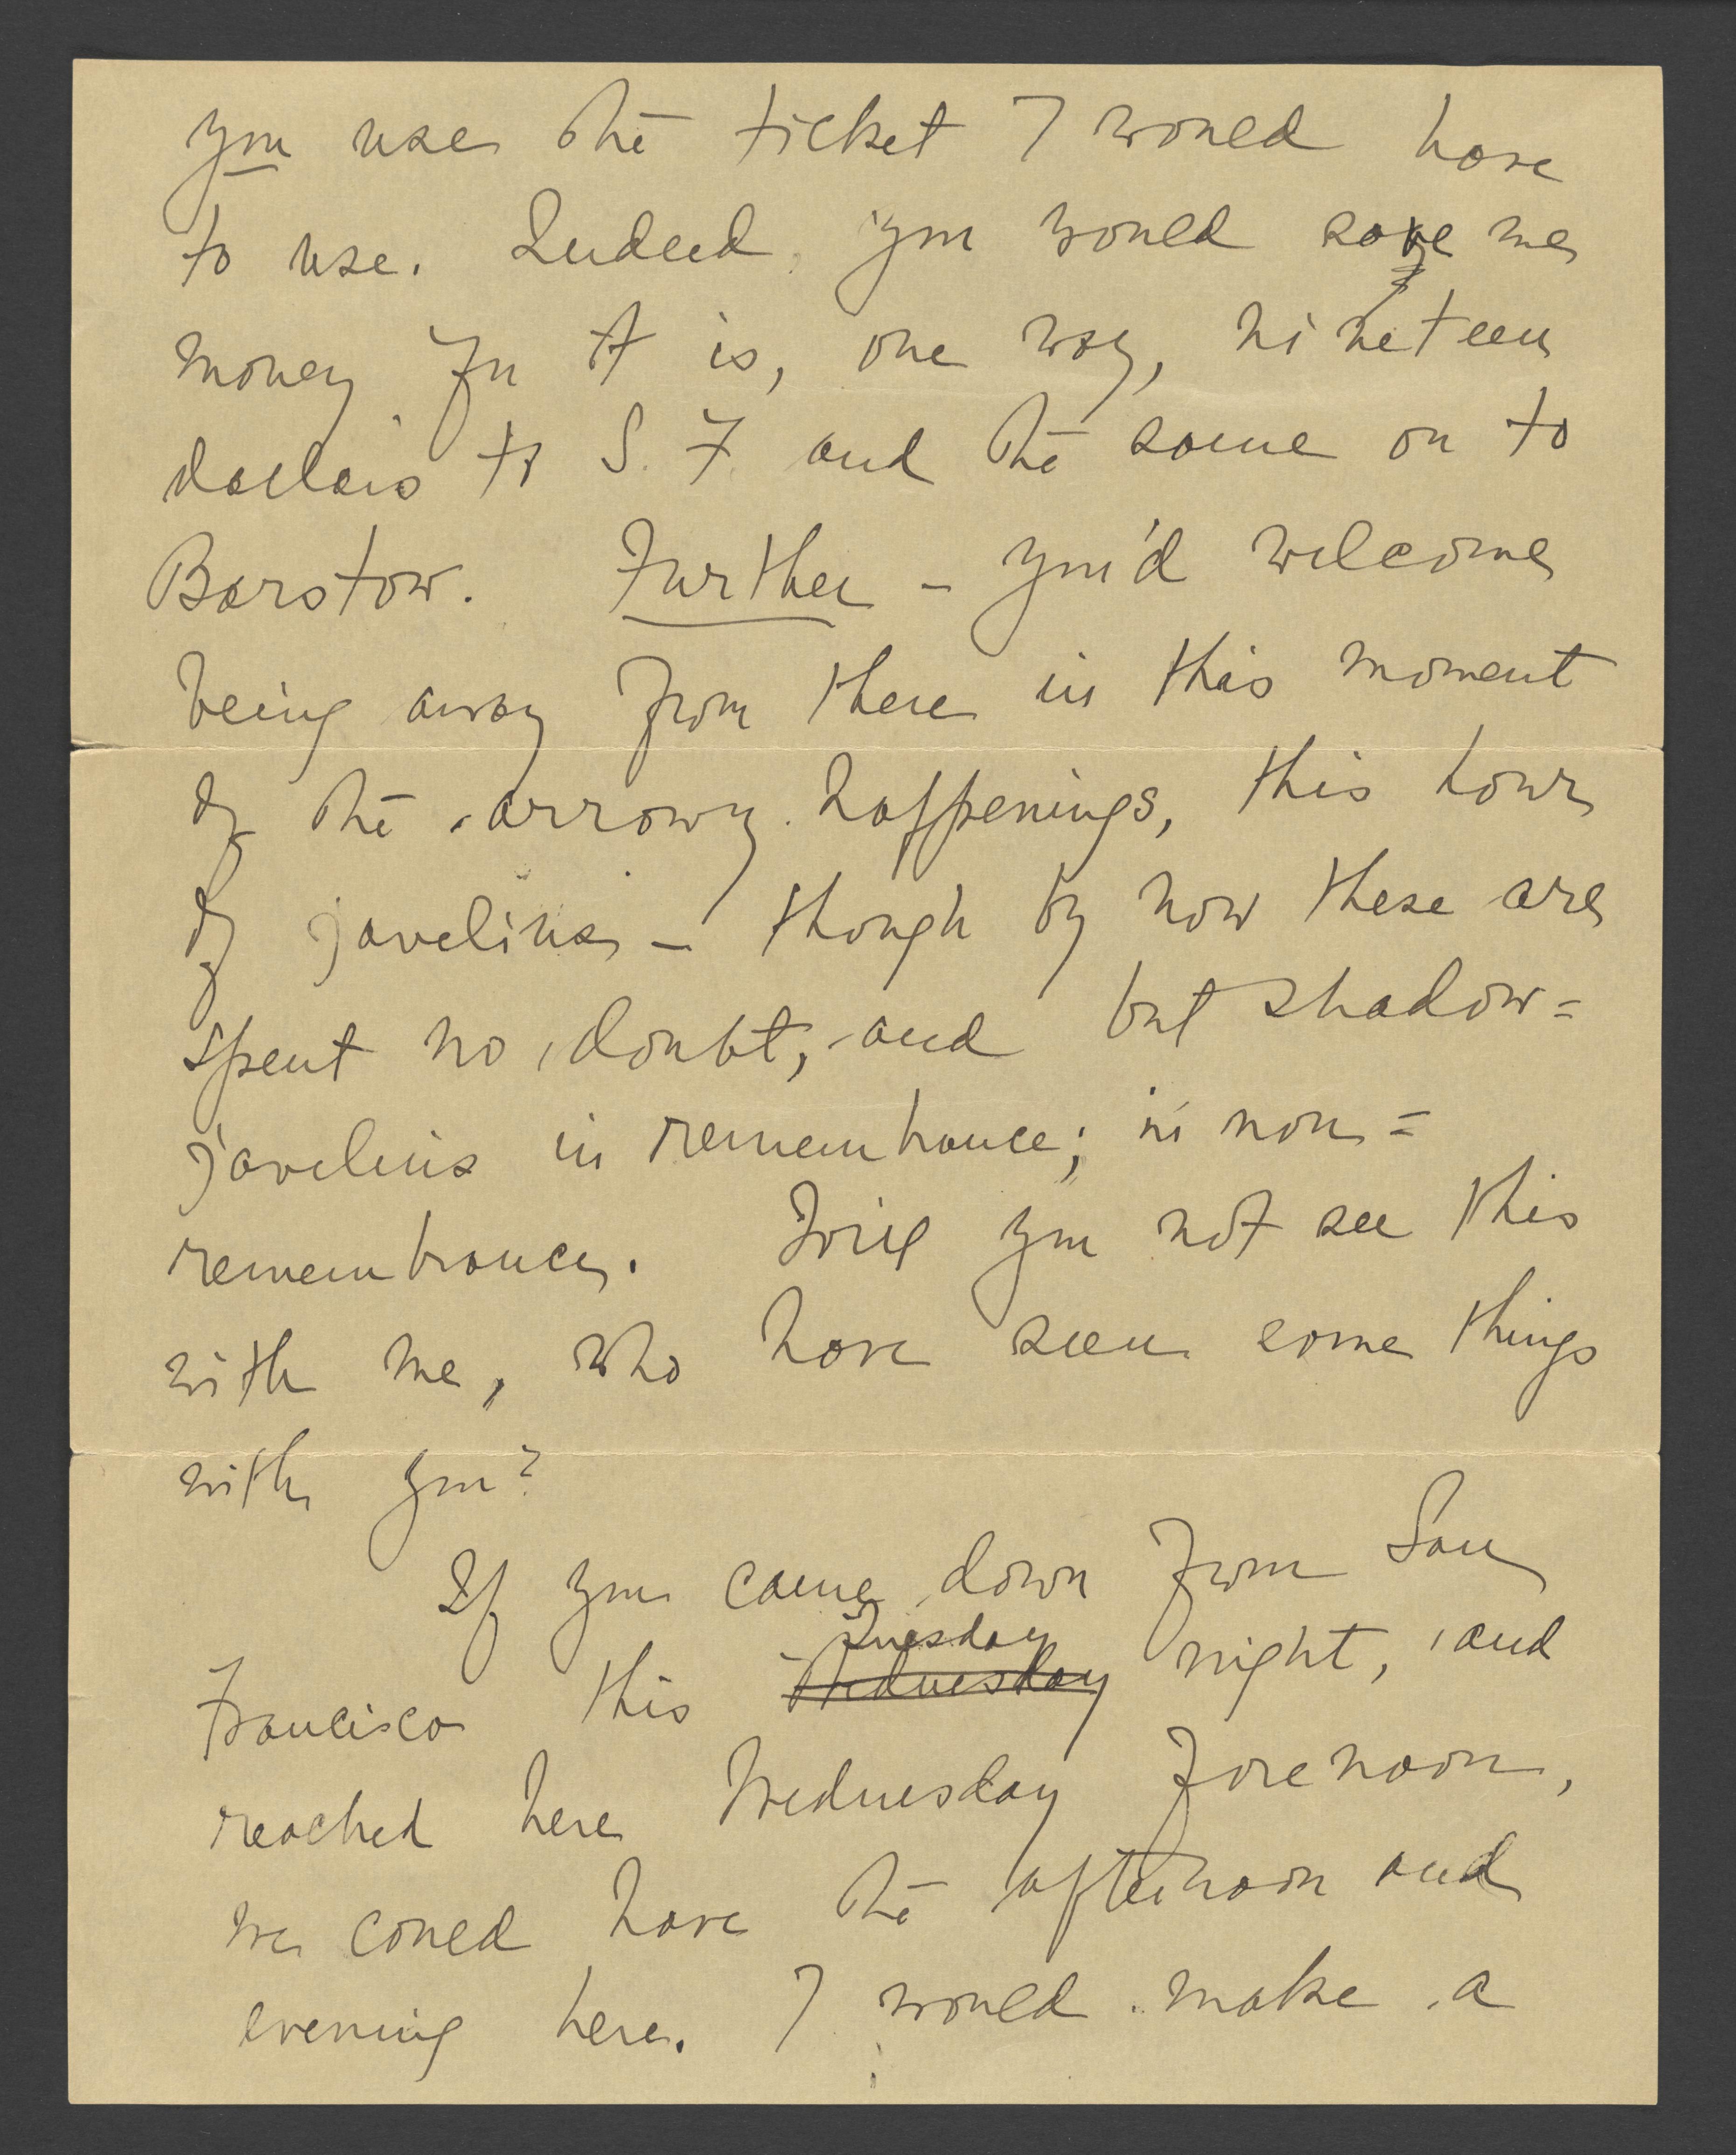 you use the ticket I would have
to use. Indeed you would save me
money for it is, one way, nineteen
dollars to S. F. and the same on to
Barstow. Further – you'd welcome
being away from there in this moment
of the arrowy happenings, this hour
of javelins – though by now these are
spent no doubt, and but shadow=
javelins in remembrance; in non=
remembrance. Will you not see this
with me, who have seen some things
with you?
If you came down from San
Tuesday
Francisco this Wednesday night, and
reached here Wednesday forenoon,
we could have the afternoon and
evening here. I would make a